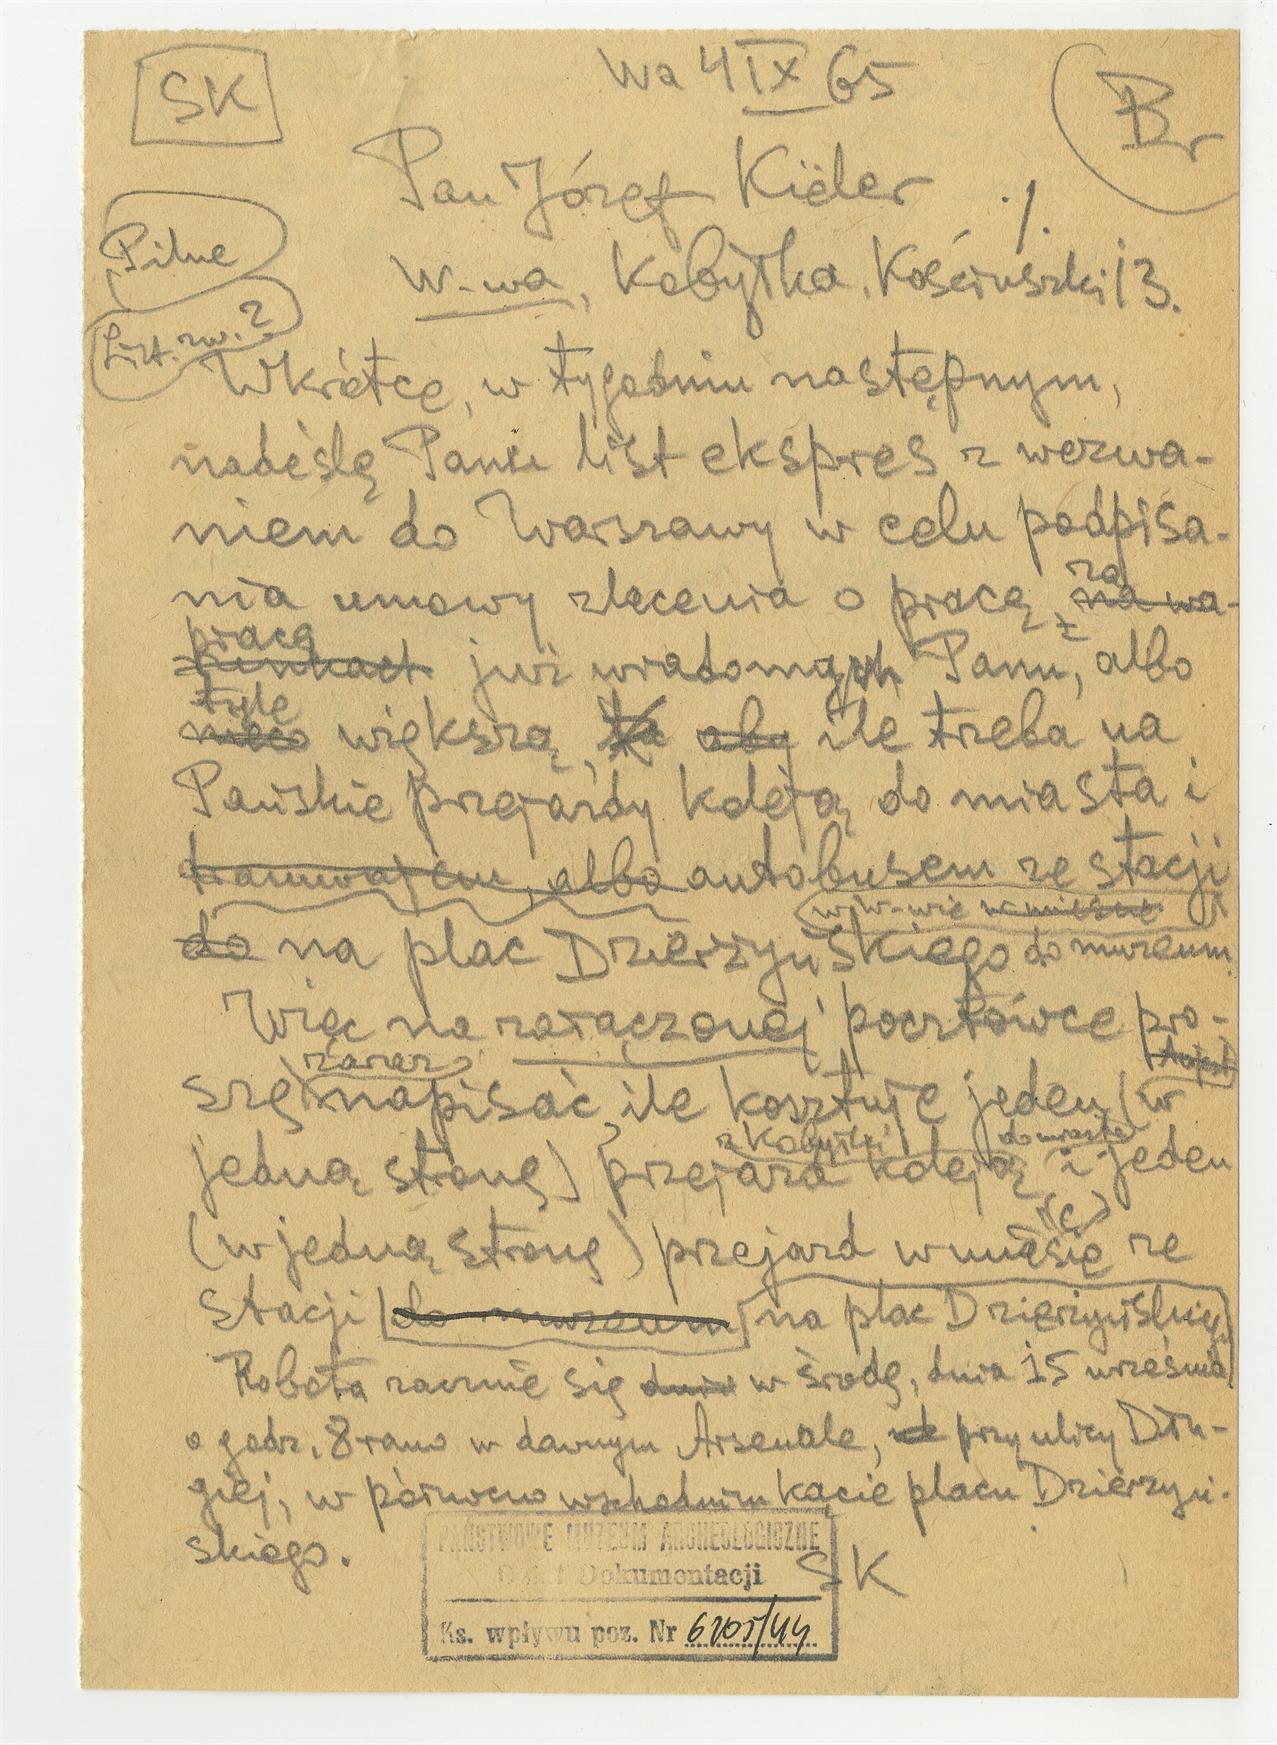 SK
Wa 4 IX 65
Br
Pan Józef Kieler
Pilne
W-wa, Kobyłka, Kościuszki 13.
List. zw. 2
Wkrótce, w tygodniu następnym,
nadeślę Panu list ekspres z wezwa-
niem do Warszawy w celu podpisa-
za
nia umowy zlecenia o pracę, na wa-
pracę
runkach już wiadomych Panu, albo
tyle
nieco większą, aby ile trzeba na
Pańskie przejazdy koleją do miasta i
tramwajem, albo autobusem ze stacji
w W-wie w mieście
do na plac Dzierżyńskiego do muzeum
Więc na załączonej pocztówce pro-
zaraz
szę napisać, ile kosztuje jeden (w
z Kobyłki do miasta
jedną stronę) przejazd koleją i jeden
(w jedną stronę) przejazd w mieście ze
stacji do muzeum na plac Dzierżyńskieg
Robota zacznie się dnia w środę, dnia 15 września
o godz. 8 rano w dawnym Arsenale, przy ulicy Dłu-
giej, w północno wschodnim kącie placu Dzierżyń-
skiego.
SK
PAŃSTWOWE MUZEUM ARCHEOLOGICZNE
Dział Dokumentacji
Ks. wpływu poz. Nr 6205/44